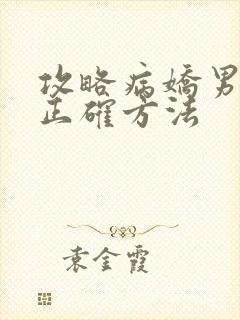 攻略病嬌男
正確方法
袁金霞